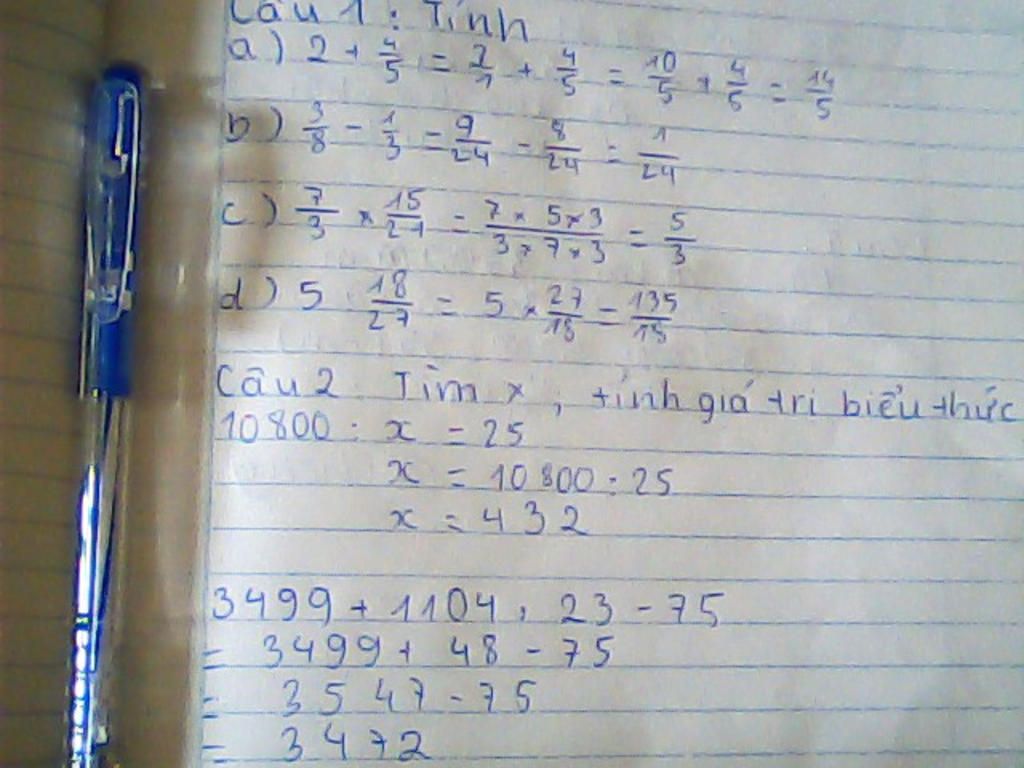 Câu 1 : Tính
a) 2 + 4/5 = 2/1 + 4/5 = 10/5 + 4/5 = 14/5
b) 3/8 - 1/3 = 9/24 - 8/24 = 1/24
c) 7/3 × 15/21 = 7 × 5 × 3 / 3 × 7 × 3 = 5/3
d) 5 : 18/27 = 5 × 27/18 = 135/18
Câu 2 Tìm x , tính giá trị biểu thức
10800 : x = 25
x = 10800 : 25
x = 432
3499 + 1104 : 23 - 75
= 3499 + 48 - 75
= 3547 - 75
= 3472